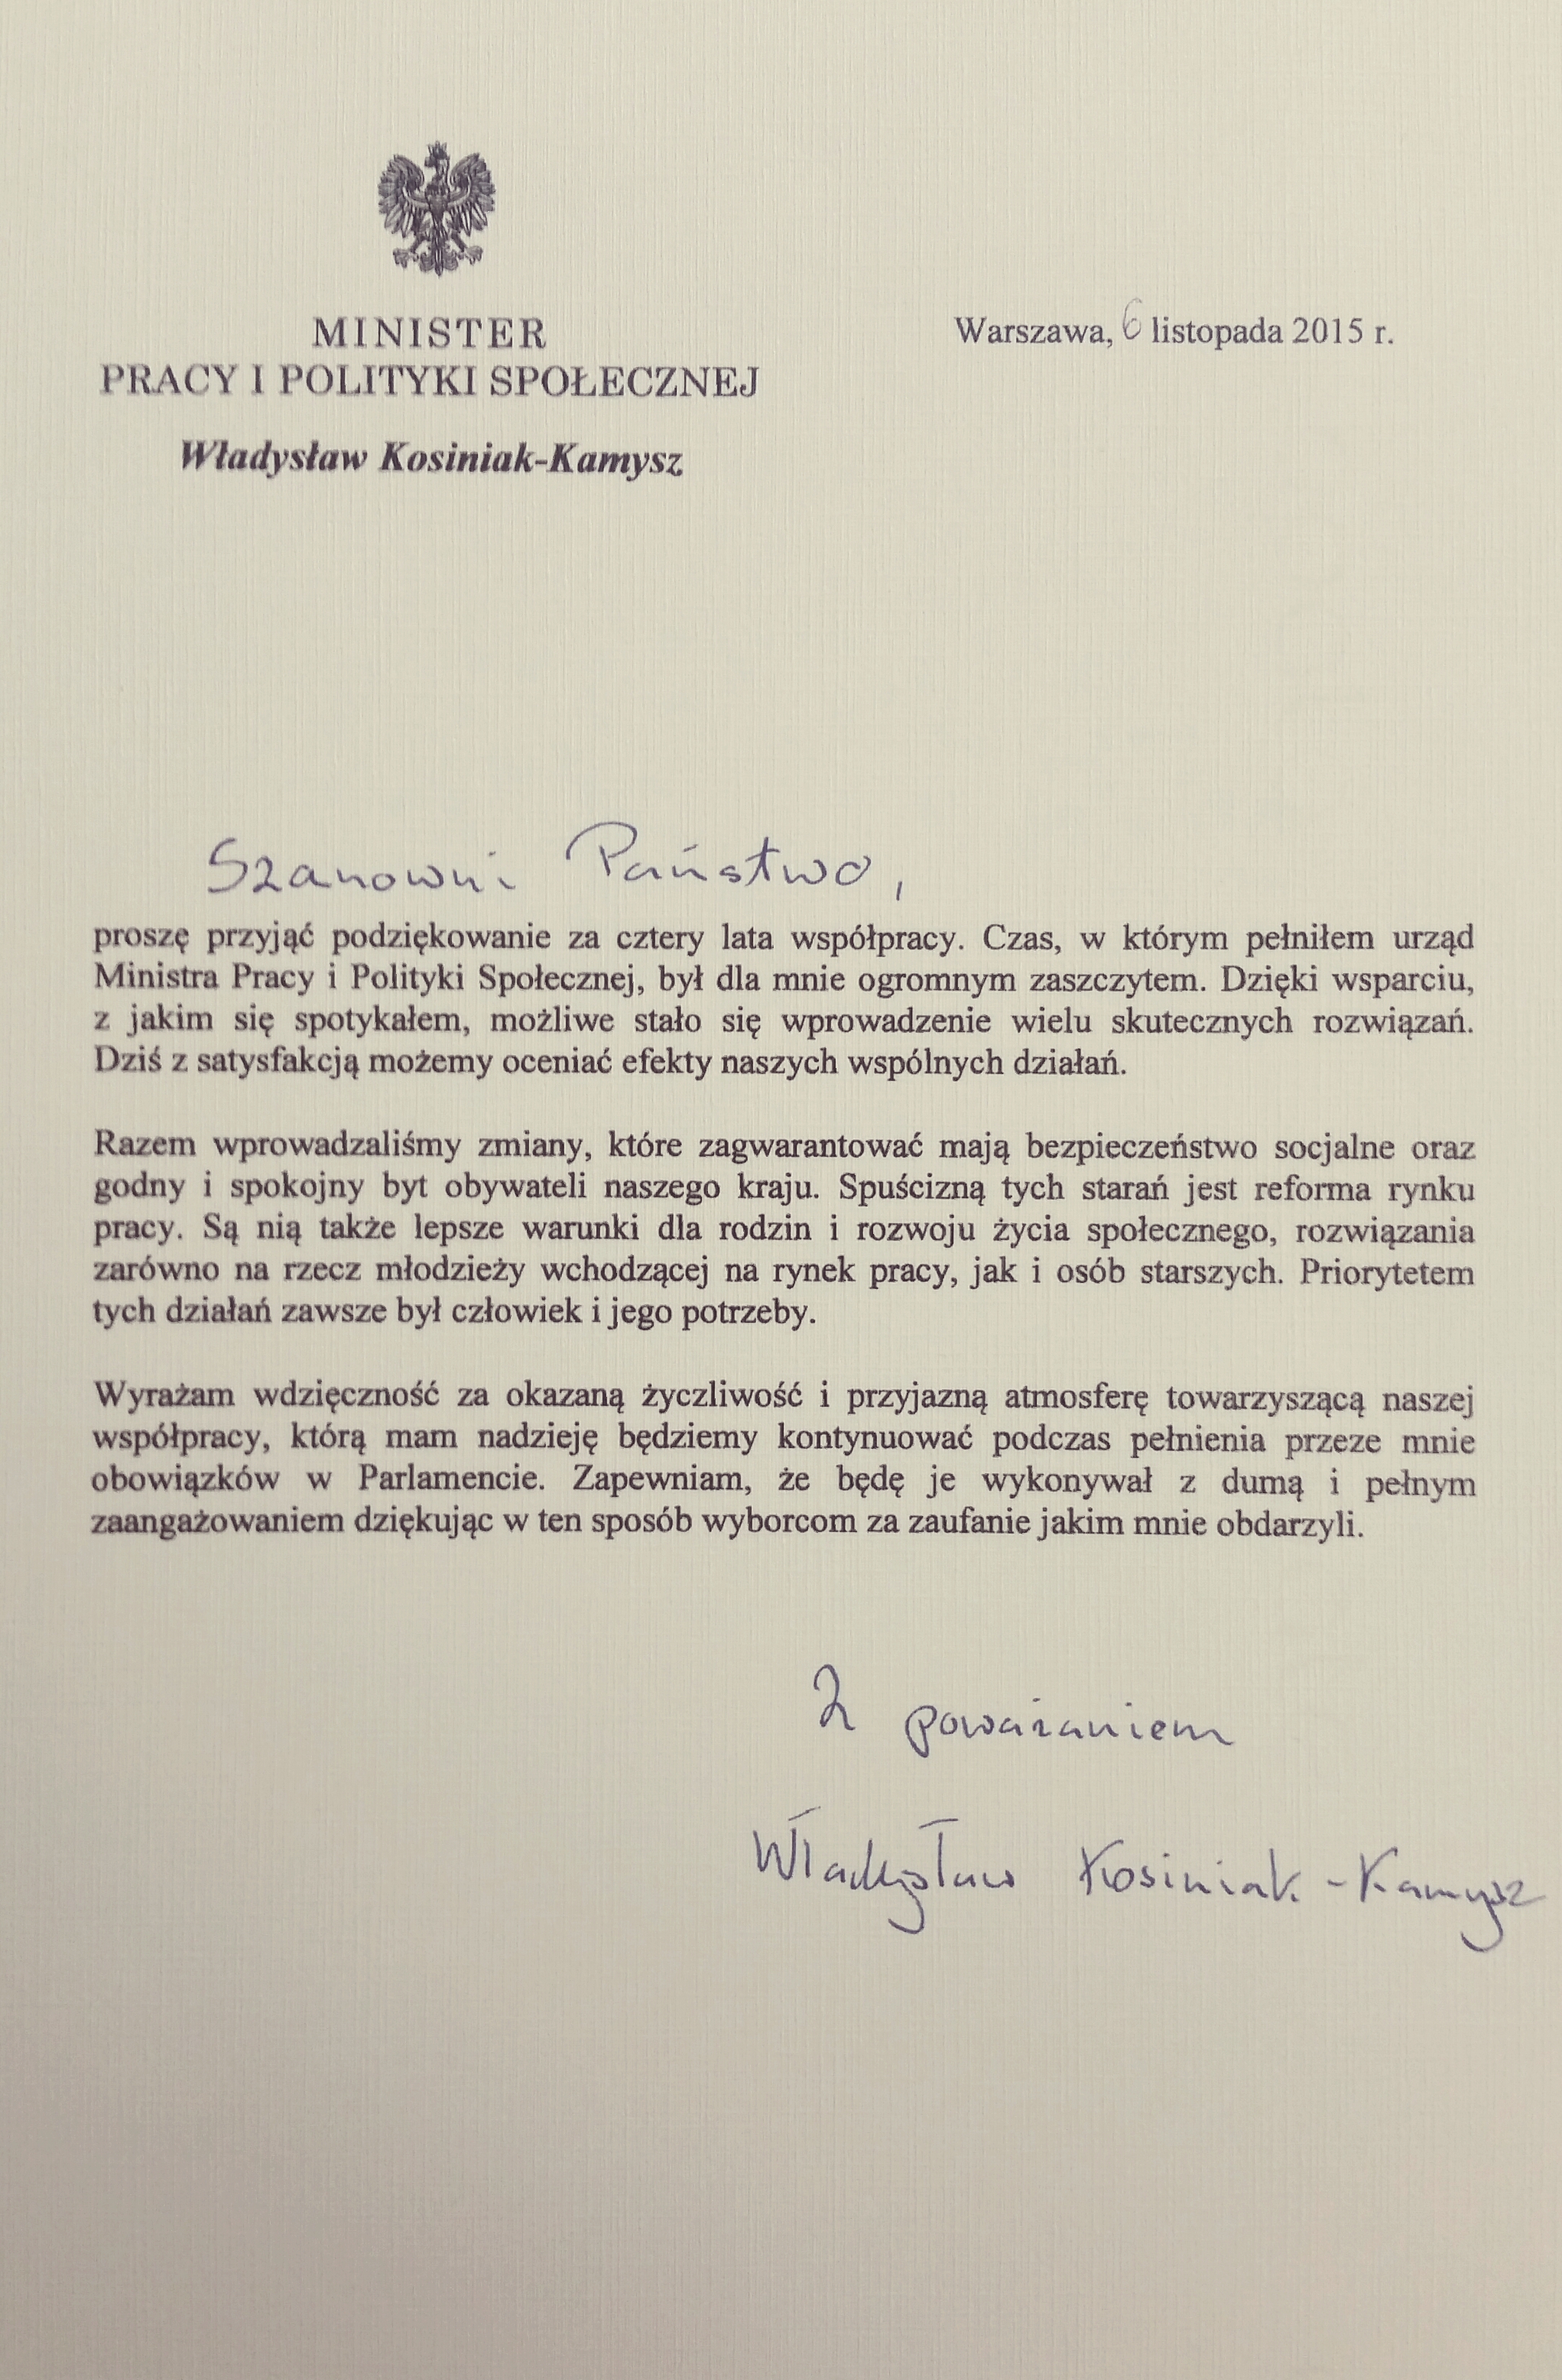 MINISTER
PRACY I POLITYKI SPOŁECZNEJ
Władysław Kosiniak-Kamysz
Warszawa, 6 listopada 2015 r.
Szanowni Państwo,
proszę przyjąć podziękowanie za cztery lata współpracy. Czas, w którym pełniłem urząd
Ministra Pracy i Polityki Społecznej, był dla mnie ogromnym zaszczytem. Dzięki wsparciu,
z jakim się spotykałem, możliwe stało się wprowadzenie wielu skutecznych rozwiązań.
Dziś z satysfakcją możemy oceniać efekty naszych wspólnych działań.
Razem wprowadzaliśmy zmiany, które zagwarantować mają bezpieczeństwo socjalne oraz
godny i spokojny byt obywateli naszego kraju. Spuścizną tych starań jest reforma rynku
pracy. Są nią także lepsze warunki dla rodzin i rozwoju życia społecznego, rozwiązania
zarówno na rzecz młodzieży wchodzącej na rynek pracy, jak i osób starszych. Priorytetem
tych działań zawsze był człowiek i jego potrzeby.
Wyrażam wdzięczność za okazaną życzliwość i przyjazną atmosferę towarzyszącą naszej
współpracy, którą mam nadzieję będziemy kontynuować podczas pełnienia przeze mnie
obowiązków w Parlamencie. Zapewniam, że będę je wykonywał z dumą i pełnym
zaangażowaniem dziękując w ten sposób wyborcom za zaufanie jakim mnie obdarzyli.
Z poważaniem
Władysław Kosiniak-Kamysz